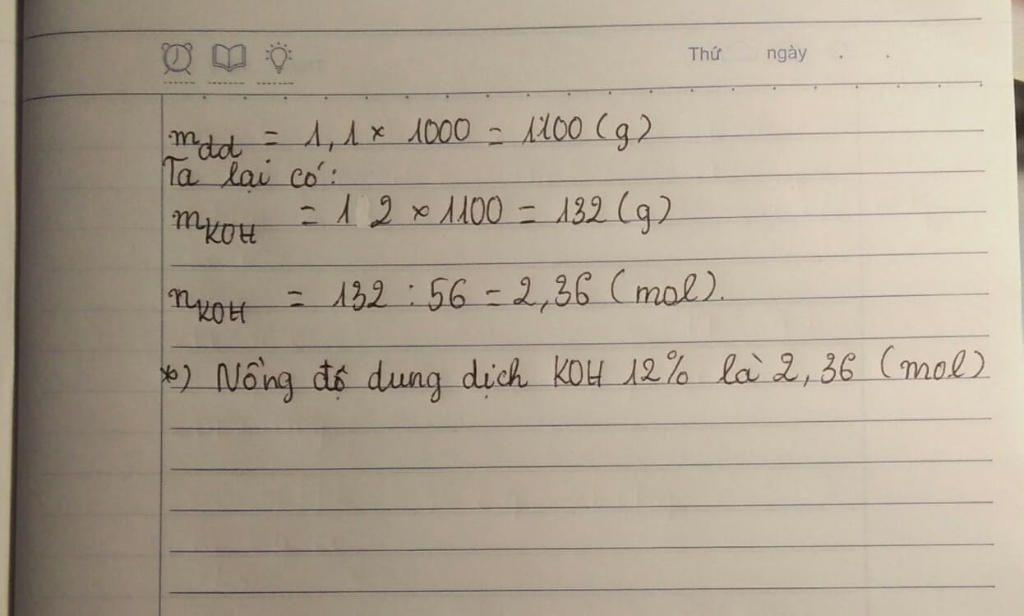 Thứ ngày . .
m_dd = 1,1 × 1000 = 1100 (g)
Ta lại có:
m_KOH = 1 2 × 1100 = 132 (g)
n_KOH = 132 : 56 = 2,36 (mol).
*) Nồng độ dung dịch KOH 12% là 2,36 (mol)